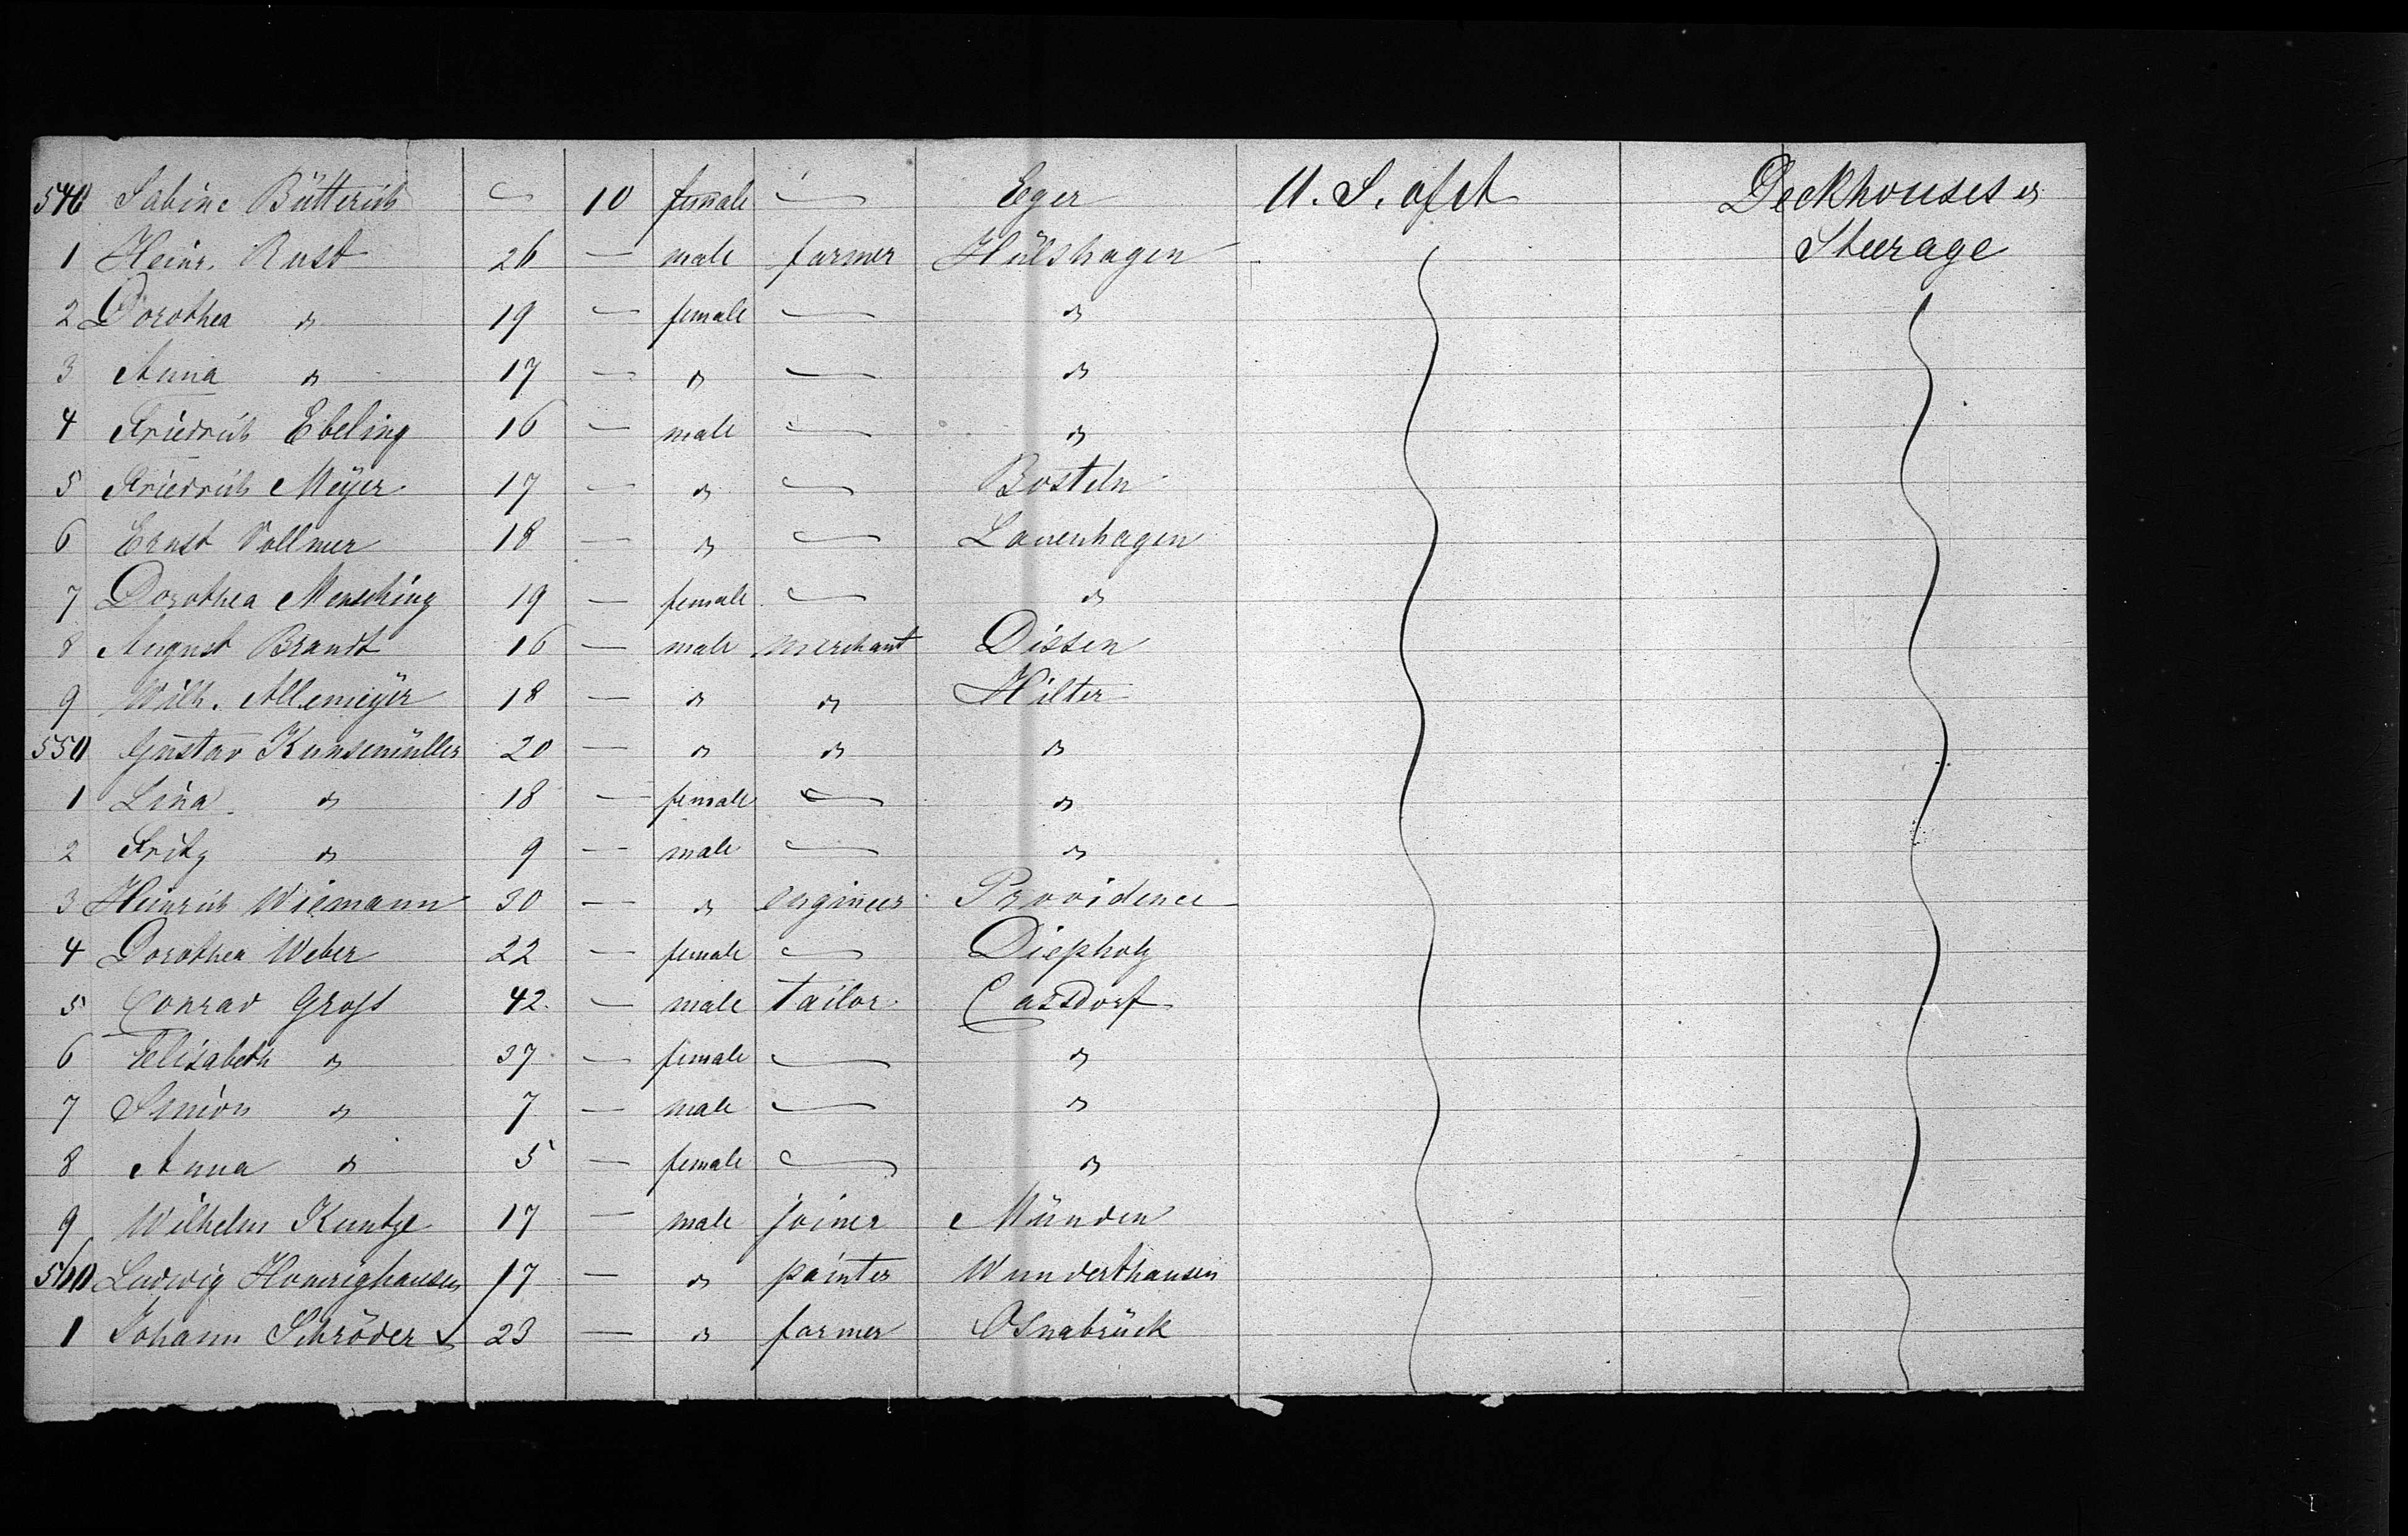 540 Sabine Bütterich — 10 female — Eger U. S. of A Deckhouses &
1 Heinr. Rust 26 — male farmer Hülshagen Steerage
2 Dorothea " 19 — female — "
3 Anna " 17 — " — "
4 Friedrich Ebeling 16 — male — "
5 Friedrich Meÿer 17 — " — Bosteln
6 Ernst Vollmer 18 — " — Lauenhagen
7 Dorothea Mensching 19 — female — "
8 August Brandt 16 — male merchant Dissen
9 Wilh. Allemeÿer 18 — " " Hilter
550 Gustav Kunsemüller 20 — " " "
1 Lina " 18 — female — "
2 Fritz " 9 — male — "
3 Heinrich Wiemann 30 — " engineer Providence
4 Dorothea Weber 22 — female — Diepholz
5 Conrad Groſs 42 — male tailor Cassdorf
6 Elisabeth " 37 — female — "
7 Simon " 7 — male — "
8 Anna " 5 — female — "
9 Wilhelm Kuntze 17 — male joiner Münden
560 Ludwig Homrighausen 17 — " painter Wunderthausen
1 Johann Schröder 23 — " farmer Osnabrück